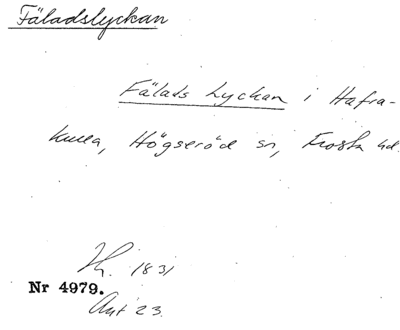 Fäladslyckan
Fälads Lyckan i Hafra-
kulla, Högseröd sn, Frosta hd.
1831
Nr 4979.
Akt 23.